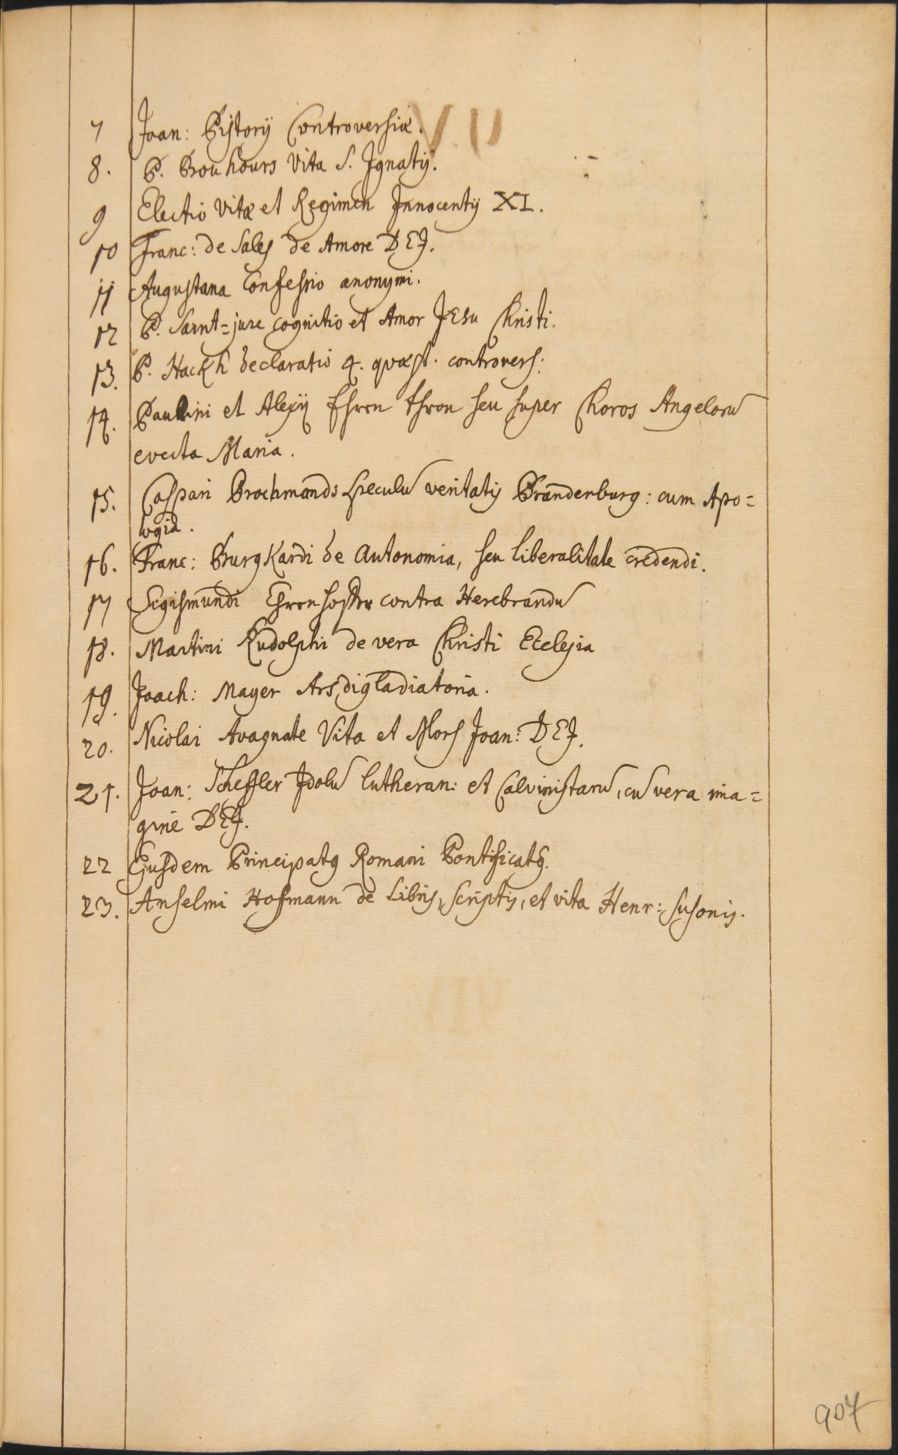 7 Joan: Pistorij Controversiæ.
8. P. Bouhours Vita S. Ignatij.
9 Electio Vitæ et Regimen Innocentij XI.
10 Franc: de Sales de Amore DEJ.
11 Augustana Confessio anonymi.
12 P. Saint=jure cognitio et Amor JEsu Christi.
13. P. Hackh declaratio 4. quæst. controvers:
14. Paulini et Alexij Ehren thron seu super Choros Angelorū
evecta Maria.
15. Caspari Brochmands Speculū veritatis Brandenburg: cum Apo=
logia.
16. Franc: Burgkardi de Autonomia, seu liberalitate credendi.
17 Sigismundi contra Herebrandū
18. Martini Rudolphi de vera Christi Ecclesia
19. Joach: Mayer Ars digladiatoria.
20. Nicolai Avagnale Vita et Mors Joan: DEJ.
21. Joan: Scheffler Idolū lutheran: et Calvinistarū, cū vera ima=
gine DEJ.
22 Ejusdem Principatus Romani Pontificatus.
23. Anselmi Hofmann de Libris, scriptis, et vita Henr: Susonis.
907